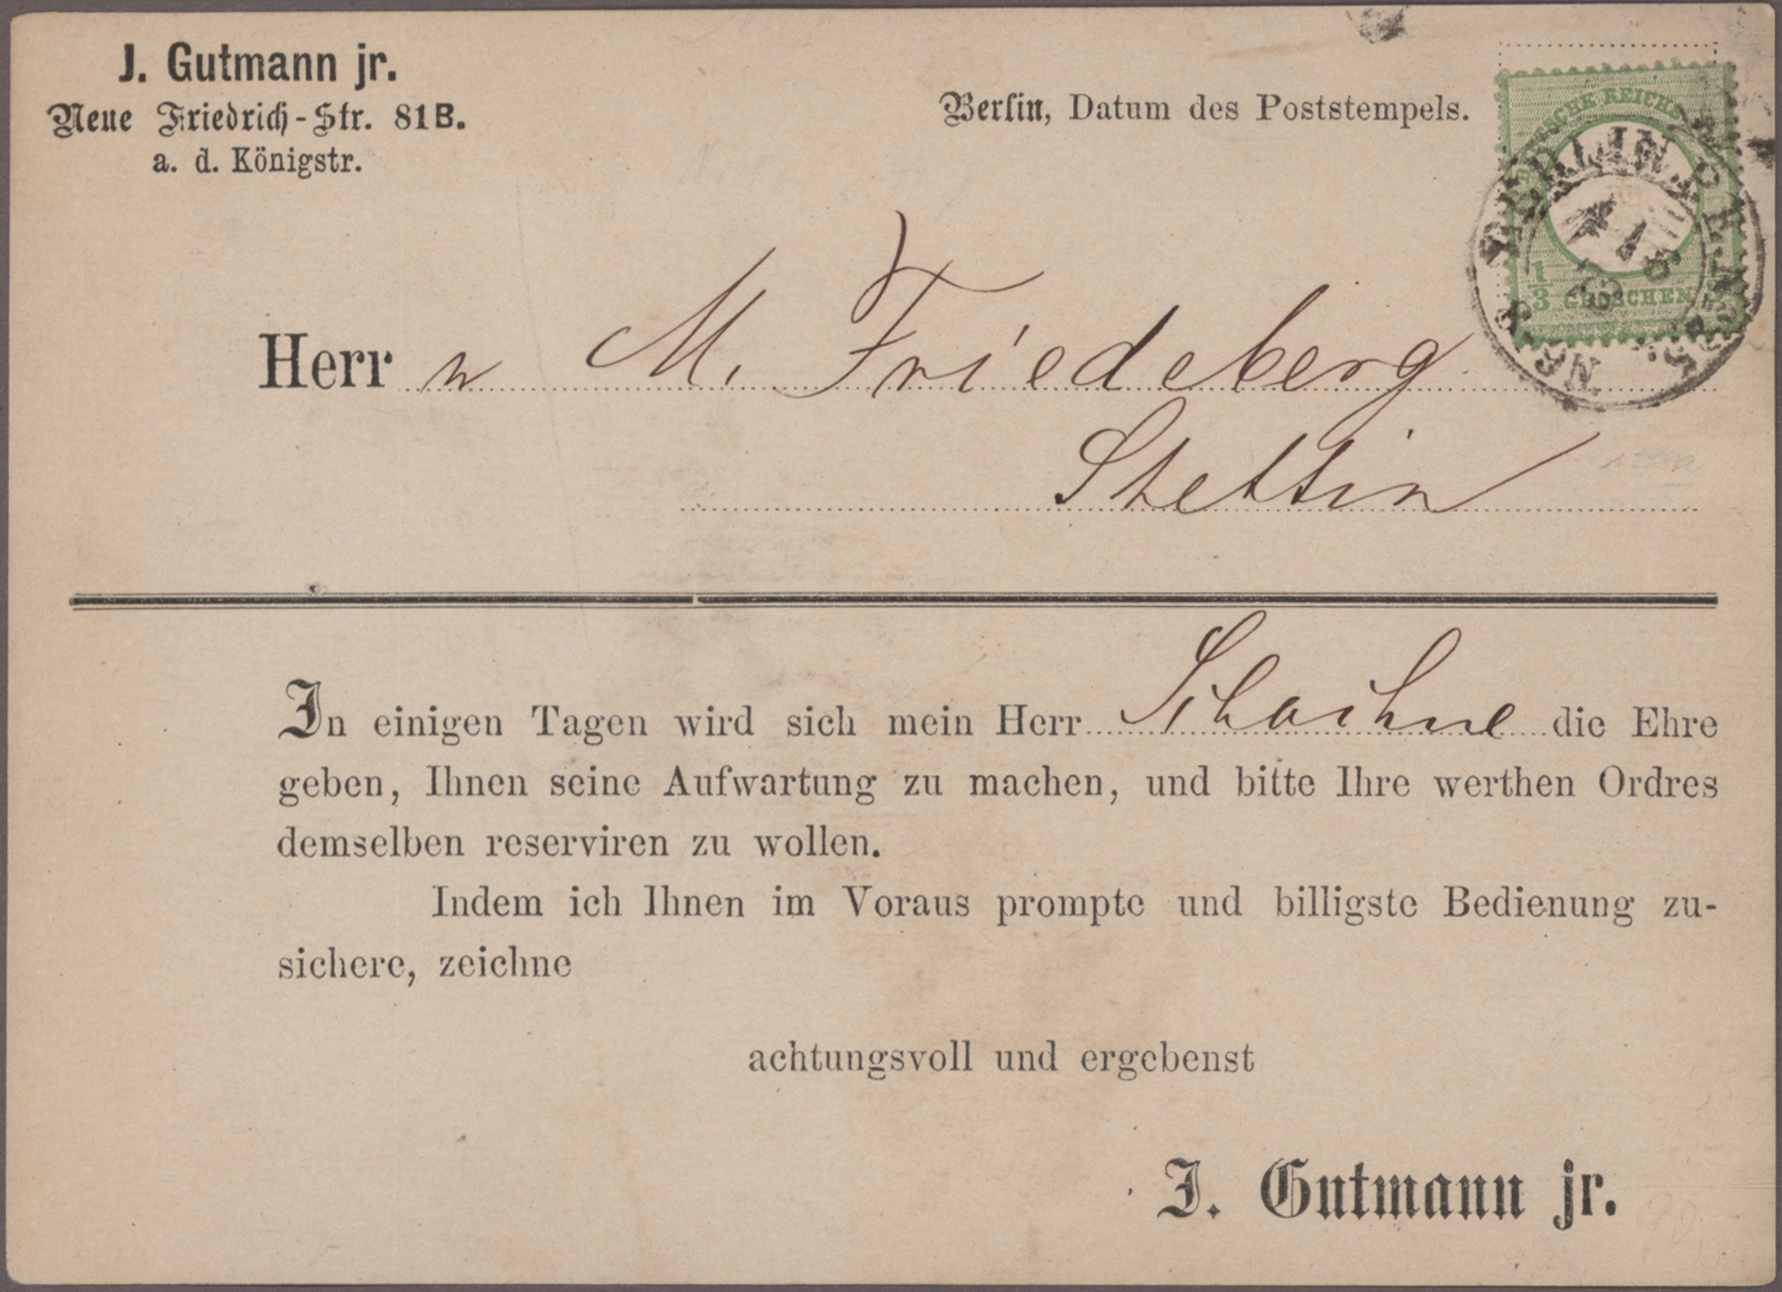 J. Gutmann jr.
Neue Friedrich-Str. 81B.
a. d. Königstr.
Berlin, Datum des Poststempels.
DEUTSCHE REICHS
1/3 GROSCHEN
BERLIN
Herrn M. Friedeberg
Stettin
In einigen Tagen wird sich mein Herr Schachne die Ehre
geben, Ihnen seine Aufwartung zu machen, und bitte Ihre werthen Ordres
demselben reserviren zu wollen.
Indem ich Ihnen im Voraus prompte und billigste Bedienung zu-
sichere, zeichne
achtungsvoll und ergebenst
J. Gutmann jr.